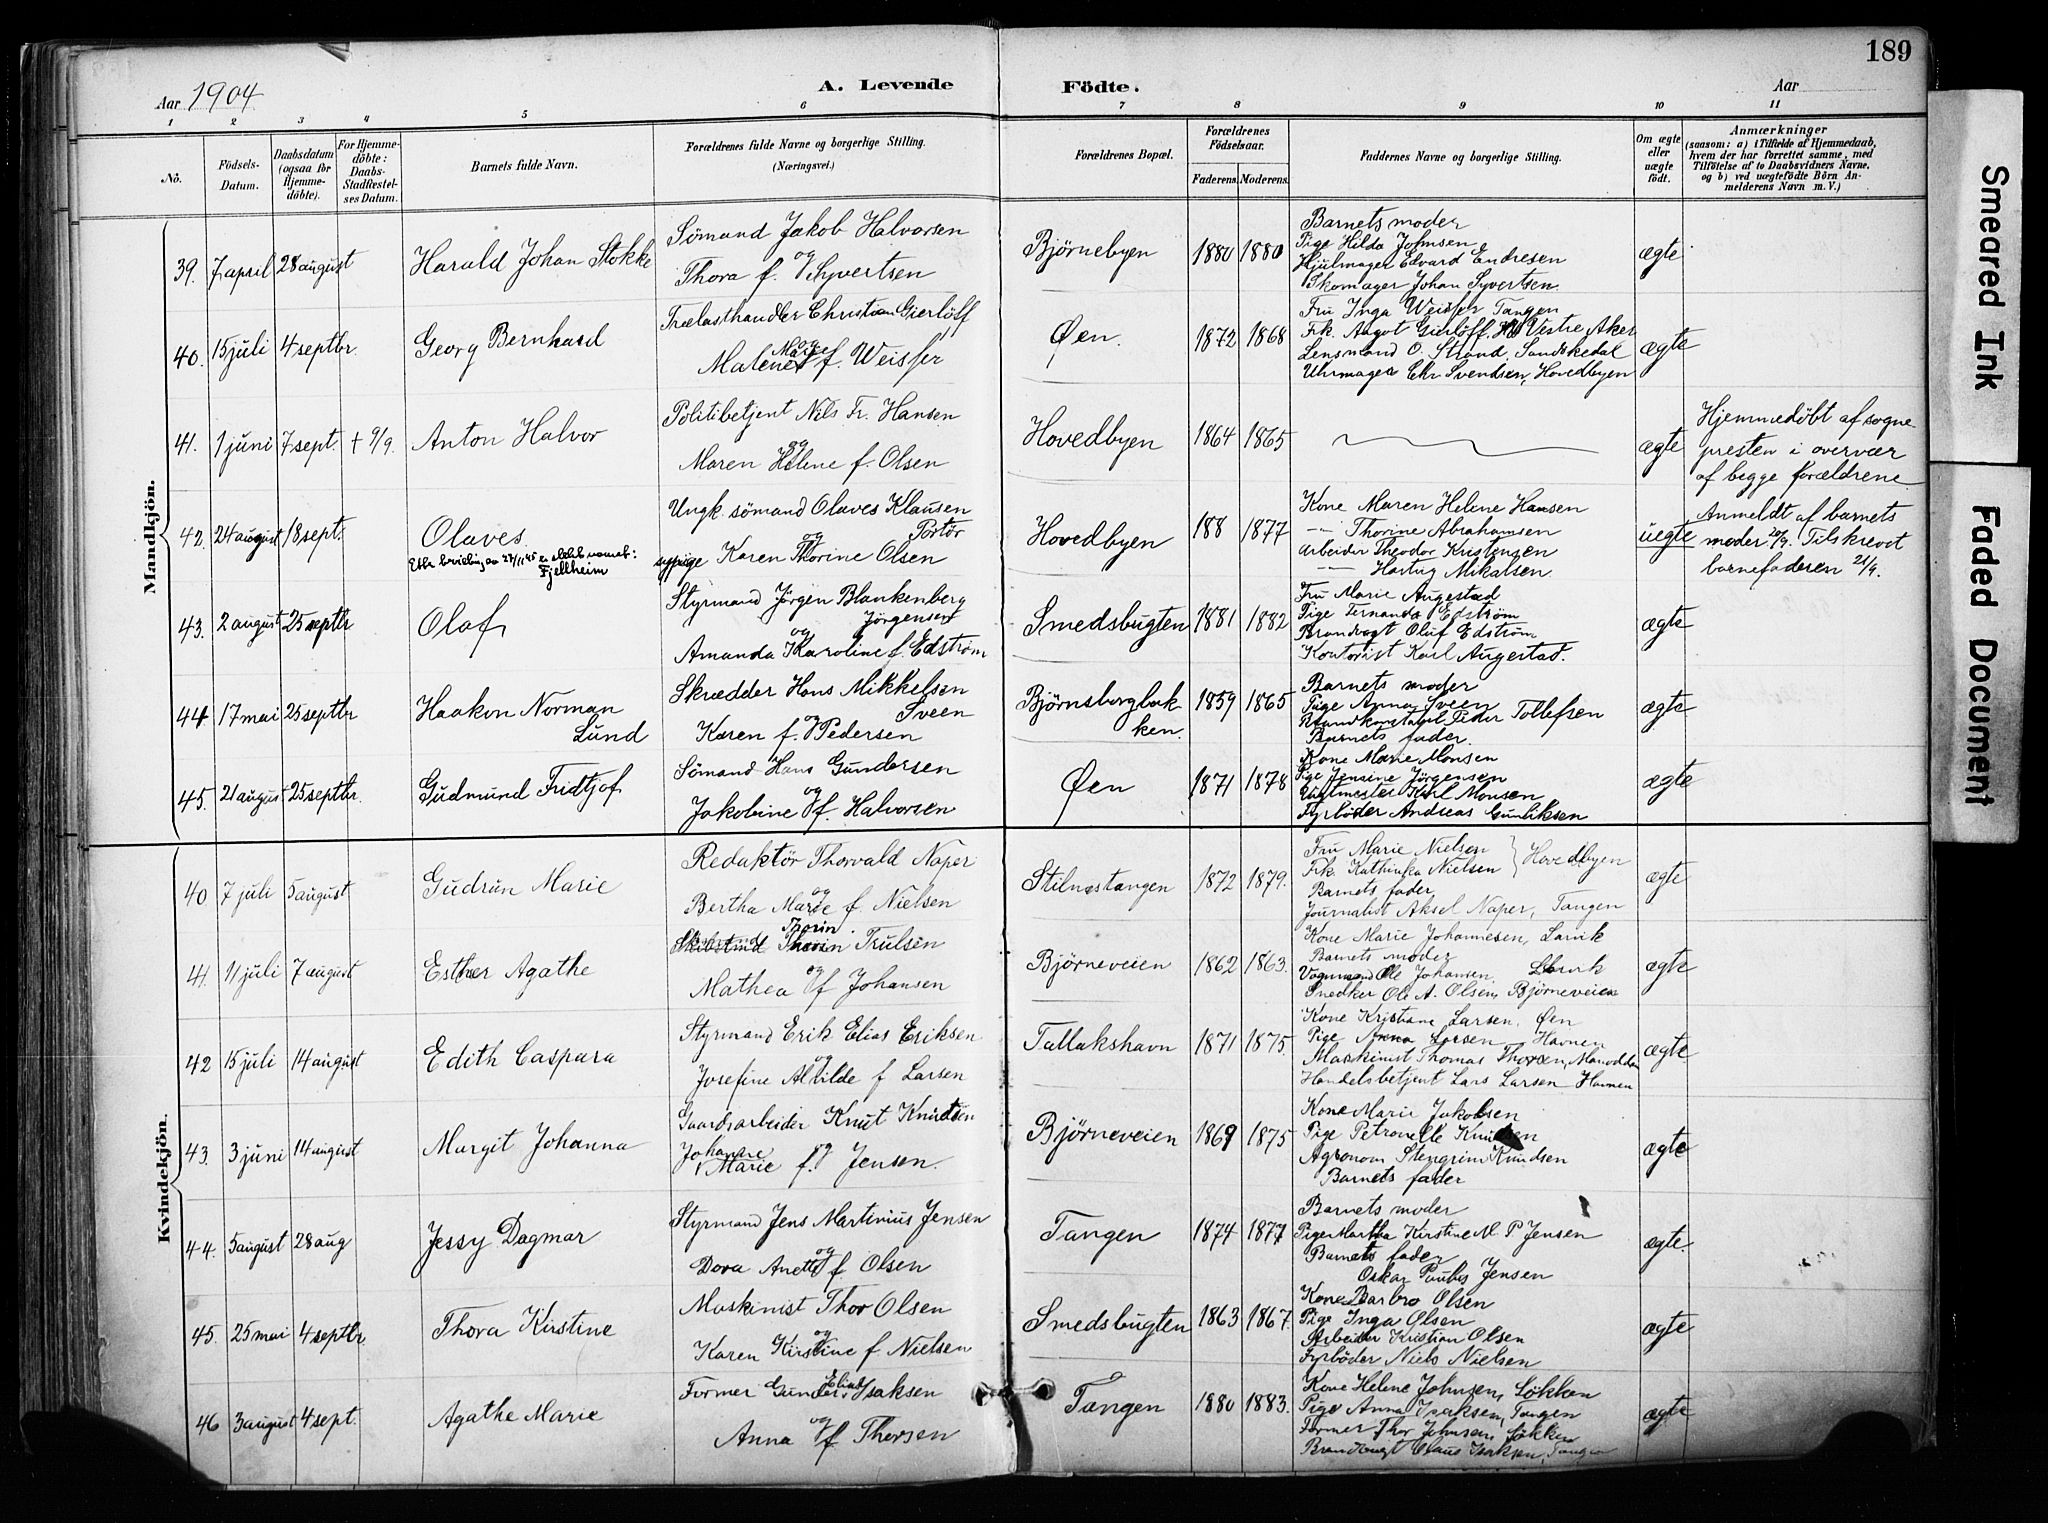 189
Aar 1904
A. Levende Födte.
Aar
1 2 3 4 5 6 7 8 9 10 11
No.
Födsels-Datum.
Daabsdatum (ogsaa for Hjemmedöbte).
For Hjemmedöbte: Daabs-Stadfæstelses Datum.
Barnets fulde Navn.
Forældrenes fulde Navne og borgerlige Stilling. (Næringsvei.)
Forældrenes Bopæl.
Forældrenes Födselsaar.
Faderens. Moderens.
Faddernes Navne og borgerlige Stilling.
Om ægte eller uægte födt.
Anmærkninger
(saasom: a) i Tilfælde af Hjemmedaab, hvem der har forrettet samme, med Tilföielse af to Daabsvidners Navne. og b) ved uægtefödte Börn Anmelderens Navn m. V.)
Mandkjön.
39. 7 april 28 august Harald Johan Stokke
Sömand Jakob Halvorsen
og
Thora f. Syvertsen
Bjørnebyen 1880 1880
Barnets moder
Pige Hilda Johnsen
Hjulmager Edvard Endresen
Skomager Johan Syvertsen
ægte
40. 15 juli 4 septbr. Georg Bernhard
Trælasthandler Christian Gierløff
og
Malene Marie f. Weisser
Øen. 1872 1868
Fru Inga Weisser Tangen
Frk. Aagot Gierløff, Vestre Aker
Lensmand O. Strand, Sandskedal
Uhrmager Chr Svendsen, Hovedbyen
ægte
41. 1 juni 7 sept. + 9/9. Anton Halvor
Politibetjent Nils Fr. Hansen
og
Maren Helene f. Olsen
Hovedbyen 1864 1865
ægte
Hjemmedøbt af sogne
presten i overvær
af begge forældrene
42. 24 august 18 sept. Olaves
Fjellheim
Ungk. sömand Olaves Klausen
Portör
og
sypige Karen Thorine Olsen
Hovedbyen 188 1877
Kone Maren Helene Hansen
-"- Thorine Abrahamsen
Arbeider Theodor Kristensen
-"- Hartvig Mikalsen
uegte
Anmeldt af barnets
moder 20/9. Tilskrevet
barnefaderen 21/9.
43. 2 august 25 septbr Olaf
Styrmand Jörgen Blankenberg
Jörgensen
og
Amanda Karoline f. Edström
Smedsbugten 1881 1882
Fru Marie Augestad
Pige Fernanda Edström
Brandvagt Oluf Edström
Kontorist Karl Augestad.
ægte
44. 17 mai 25 septbr Haakon Norman
Lund
Skrædder Hans Mikkelsen
Sveen
og
Karen f. Pedersen
Bjørnsborgbak-
ken. 1859 1865
Barnets moder
Pige Anna Sveen
Brandkonstabel Peder Tollefsen
Barnets fader.
ægte
45. 21 august 25 septbr. Gudmund Fridtjof
Sömand Hans Gundersen
og
Jakobine f. Halvorsen
Øen 1871 1878
Kone Marie Monsen
Pige Jensine Jørgensen
Karl Monsen
Fyrbøder Andreas Gunliksen
ægte
Kvindekjön.
40 7 juli 5 august Gudrun Marie
Redaktör Thorvald Naper
og
Bertha Marie f. Nielsen
Stilnestangen 1872 1879.
Fru Marie Nielsen
Frk Kathinka Nielsen } Hovedbyen
Barnets fader
Journalist Aksel Naper, Tangen
ægte
41. 11 juli 7 august Esther Agathe
Thorin
Trulsen
og
Mathea f Johansen
Bjørneveien 1862 1863.
Kone Marie Johannesen, Larvik
Barnets moder
Vognmand Ole Johansen, Larvik
Snedker Ole A. Olsen, Bjørneveien
ægte
42 15 juli 14 august Edith Caspara
Styrmand Erik Elias Eriksen
og
Josefine Alvilde f Larsen
Tallakshavn 1871 1875.
Kone Kristiane Larsen, Øen
Pige Anna Larsen Havnen
Maskinist Thomas Thorsen,
Handelsbetjent Lars Larsen Havnen
ægte
43. 3 juni 14 august Margit Johanna
Gaardsarbeider Knut Knudsen
og
Johanne Marie f. Jensen.
Bjørneveien 1869 1875
Kone Marie Jakobsen
Pige Petronelle Knudsen
Agronom Stengrim Knudsen
Barnets fader
ægte
44. 5 august 28 aug Jessy Dagmar
Styrmand Jens Martinius Jensen
og
Dora Anette f Olsen
Tangen 1874 1877
Barnets moder
Pige Martha Kirstine M. P. Jensen
Barnets fader
Oskar Paulus Jensen
ægte.
45. 25 mai 4 septbr. Thora Kirstine
Maskinist Thor Olsen
og
Karen Kirstine f. Nielsen
Smedsbugten 1863 1867.
Kone Barbro Olsen
Pige Inga Olsen
Arbeider Kristian Olsen
Fyrbøder Niels Nielsen
ægte
46 3 august 4 sept. Agathe Marie
Former Gunder Elias Isaksen
og
Anna f Thorsen
Tangen 1880 1883.
Kone Helene Johnsen, Løkken
Pige Anna Isaksen, Tangen
Former Thor Johnsen Løkken
Brandvagt Claus Isaksen, Tangen
ægte
Smeared Ink
Faded Document